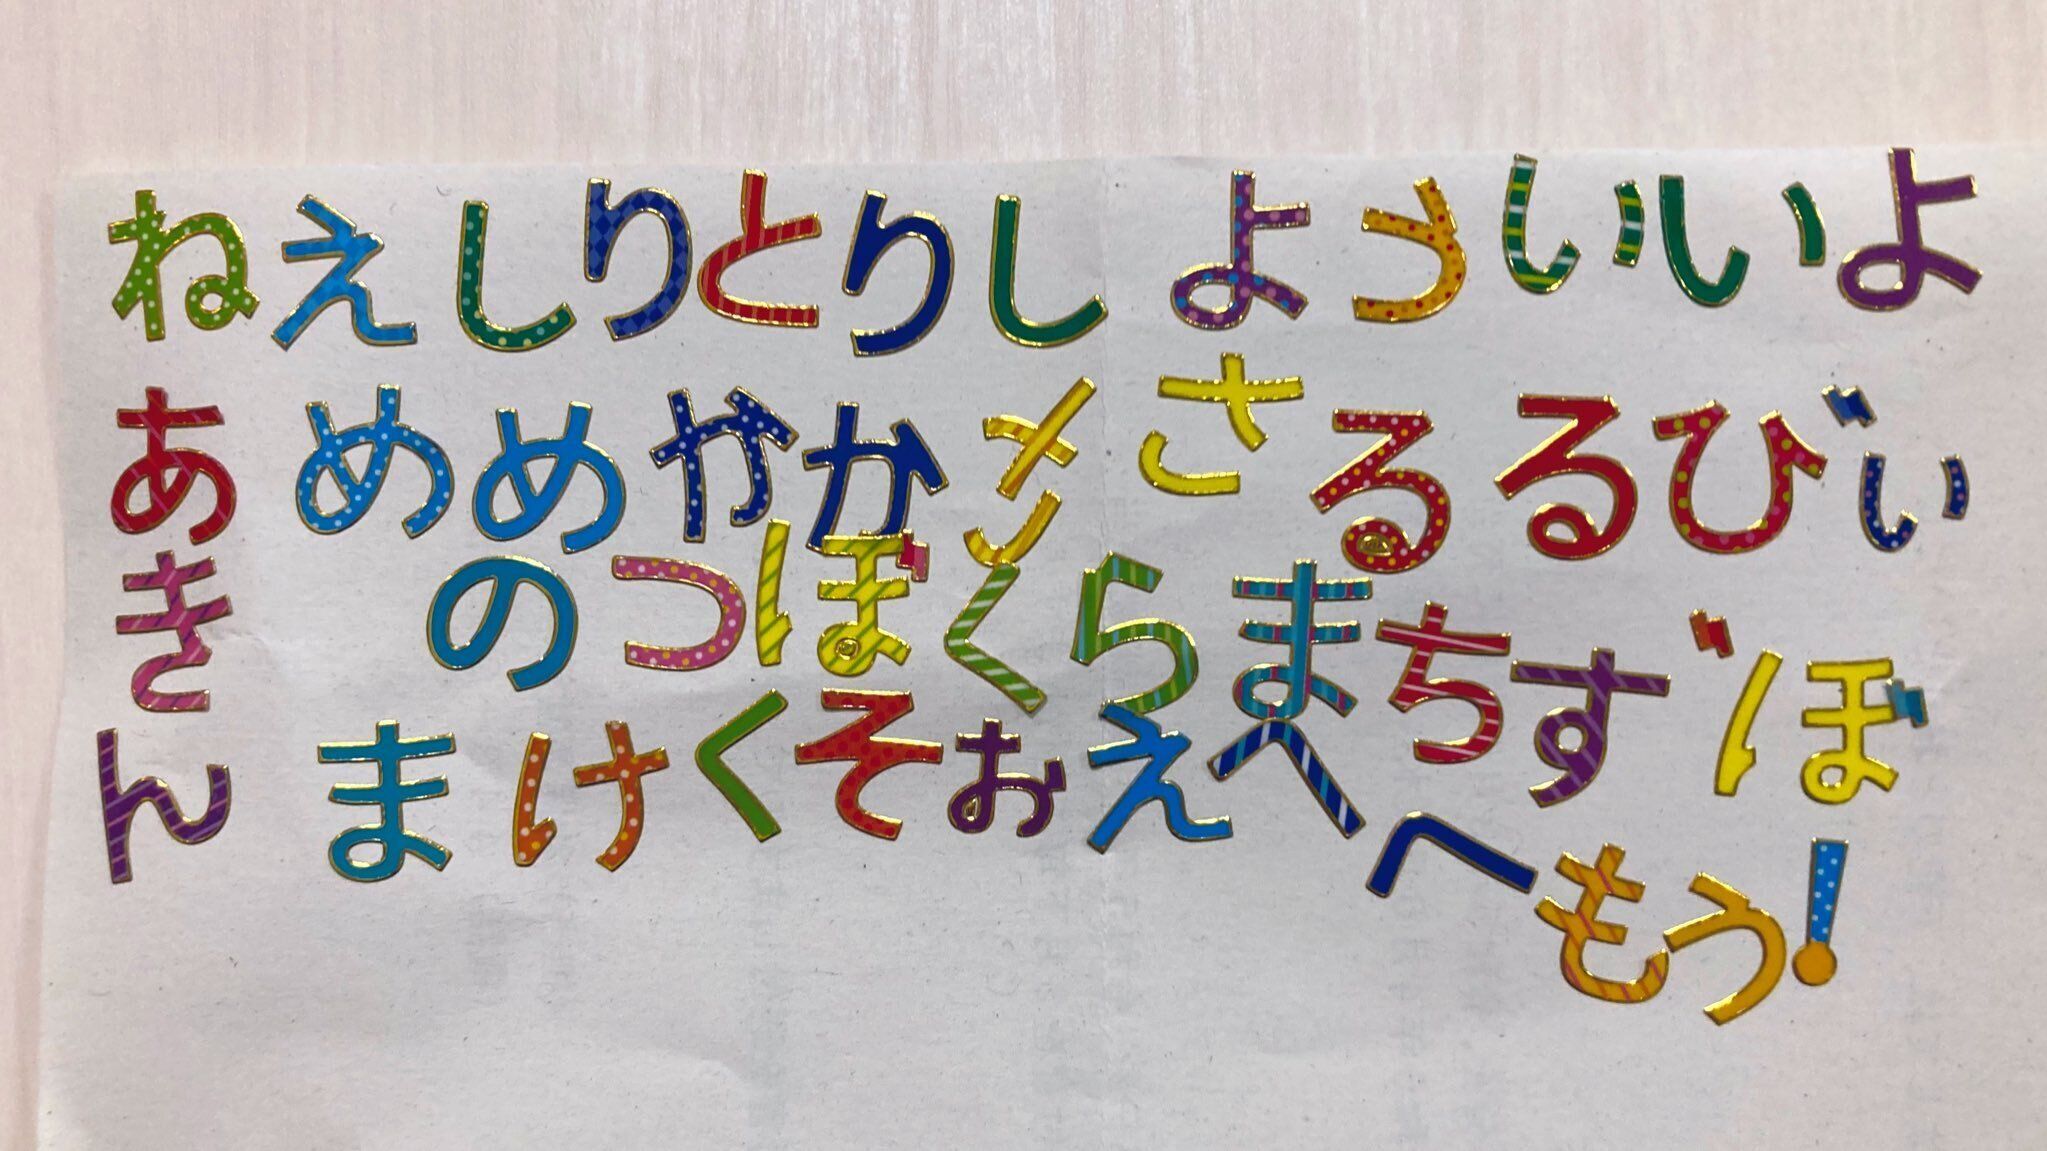 ねえしりとりしよういいよ
あめめかかさるるびぃ
きのつぼくらまちずぼ
んまけくそぉえへへもう!